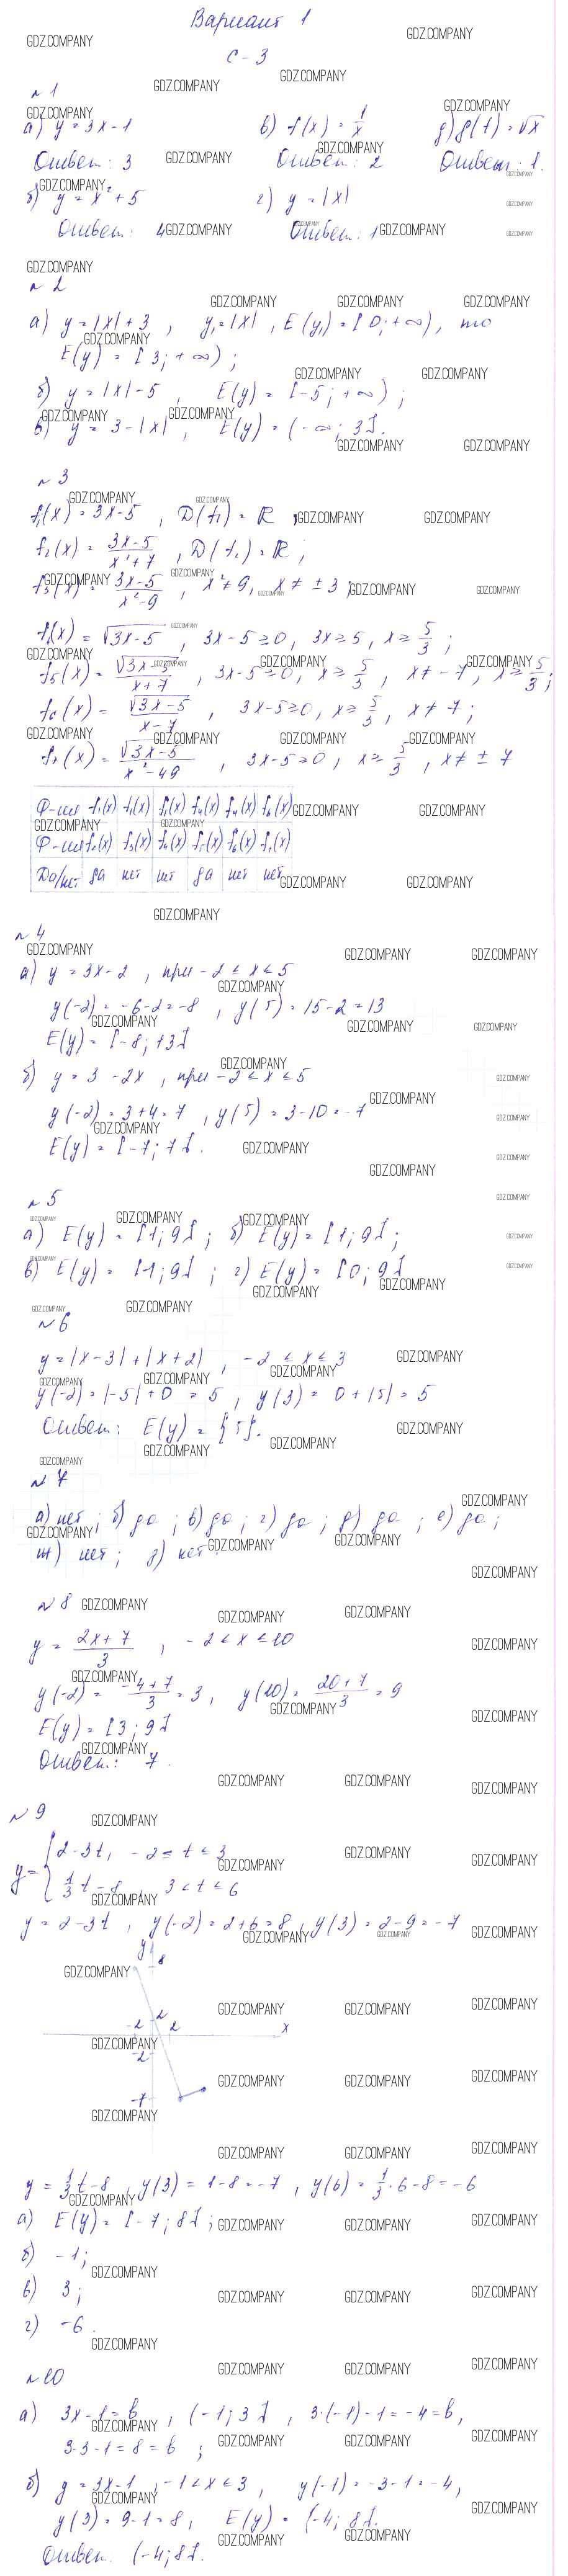 Вариант 1
С-3
№1
а) y = 3x-1 в) f(x) = 1/x д) f(t) = √x
Ответ: 3 Ответ: 2 Ответ: 1.
б) y = x² + 5 г) y = |x|
Ответ: 4 Ответ: 1
№2
а) y = |x| + 3, y₁ = |x|, E(y₁) = [0; +∞), то
E(y) = [3; +∞);
б) y = |x| - 5, E(y) = [-5; +∞);
в) y = 3 - |x|, E(y) = (-∞; 3].
№3
f₁(x) = 3x-5, D(f₁) = R;
f₂(x) = (3x-5)/(x²+7), D(f₂) = R;
f₃(x) = (3x-5)/(x²-9), x² ≠ 9, x ≠ ±3;
f₄(x) = √(3x-5), 3x-5 ≥ 0, 3x ≥ 5, x ≥ 5/3;
f₅(x) = √(3x-5)/(x+7), 3x-5 ≥ 0, x ≥ 5/3, x ≠ -7, x ≥ 5/3;
f₆(x) = √(3x-5)/(x-7), 3x-5 ≥ 0, x ≥ 5/3, x ≠ 7;
f₇(x) = √(3x-5)/(x²-49), 3x-5 ≥ 0, x ≥ 5/3, x ≠ ±7
Ф-ция f₁(x) f₁(x) f₁(x) f₄(x) f₄(x) f₆(x)
Ф-ция f₂(x) f₃(x) f₄(x) f₅(x) f₆(x) f₇(x)
Да/нет да нет нет да нет нет
№4
а) y = 3x-2, при -2 ≤ x ≤ 5
y(-2) = -6-2 = -8, y(5) = 15-2 = 13
E(y) = [-8; 13]
б) y = 3-2x, при -2 ≤ x ≤ 5
y(-2) = 3+4 = 7, y(5) = 3-10 = -7
E(y) = [-7; 7].
№5
а) E(y) = [1; 9]; б) E(y) = [1; 9];
в) E(y) = [1; 9]; г) E(y) = [0; 9]
№6
y = |x-3| + |x+2|, -2 ≤ x ≤ 3
y(-2) = |-5| + 0 = 5, y(3) = 0 + |5| = 5
Ответ: E(y) = {5}.
№7
а) нет; б) да; в) да; г) да; д) да; е) да;
ж) нет; з) нет.
№8
y = (2x+7)/3, -2 ≤ x ≤ 10
y(-2) = (-4+7)/3 = 3, y(10) = (20+7)/3 = 9
E(y) = [3; 9]
Ответ: 7.
№9
y = { 2-3t, -2 ≤ t ≤ 3
1/3 t - 8, 3 < t ≤ 6
y = 2-3t, y(-2) = 2+6 = 8, y(3) = 2-9 = -7
y
8
2
-2 2 x
-2
-7
y = 1/3 t - 8, y(3) = 1-8 = -7, y(6) = 1/3 · 6 - 8 = -6
а) E(y) = [-7; 8];
б) -1;
в) 3;
г) -6.
№10
а) 3x-1 = b, (-1; 3], 3·(-1)-1 = -4 = b,
3·3-1 = 8 = b;
б) y = 3x-1, -1 < x ≤ 3, y(-1) = -3-1 = -4,
y(3) = 9-1 = 8, E(y) = (-4; 8].
Ответ. (-4; 8].
GDZ.COMPANY